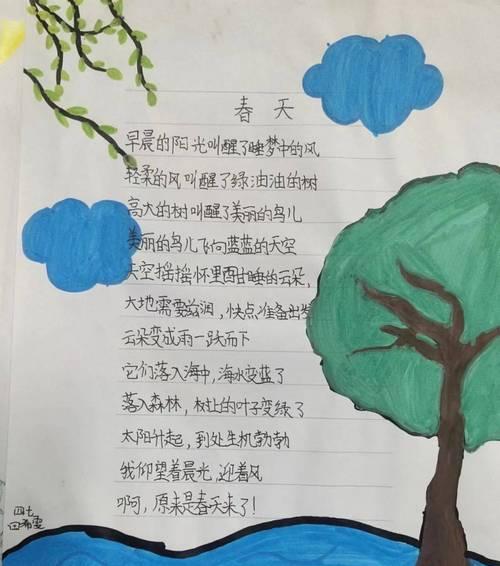 春天
早晨的阳光叫醒了睡梦中的风
轻柔的风叫醒了绿油油的树
高大的树叫醒了美丽的鸟儿
美丽的鸟儿飞向蓝蓝的天空
天空摇摇怀里酣睡的云朵,
大地需要滋润,快点准备出发
云朵变成雨一跃而下
它们落入海中,海水变蓝了
落入森林,树上的叶子变绿了
太阳升起,到处生机勃勃
我仰望着晨光,迎着风
啊,原来是春天来了!
四七
田希雯